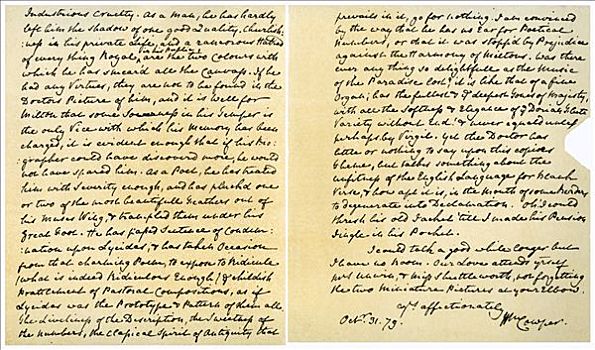 Industrious Cruelty. As a Man, he has hardly
left him the Shadow of one good Quality. Churlish-
-ness in his private Life, and a rancorous Hatred
in his Public
of every thing Royal, are the two Colours with
which he has smear'd all the Canvass. If he
had any Virtues, they are not to be found in the
Doctors Picture of him, and it is well for
Milton that some Sourness in his Temper is
the only Vice with which his Memory has been
charged, it is evident enough that if his Bio-
-grapher could have discovered more, he would
not have spared him. As a Poet, he has treated
him with Severity enough, and has pluck'd one
or two of the most beautifull Feathers out of
his Muses Wing, & trampled them under his
Great Foot. He has passed Sentence of Condem-
-nation upon Lycidas, & has taken Occasion
from that charming Poem, to expose to Ridicule
(what is indeed Ridiculous Enough) the childish
Prattlement of Pastoral Compositions, as if
Lycidas was the Prototype & Pattern of them all.
The Liveliness of the Description, the Sweetness of
the Numbers, the Classical Spirit of Antiquity that
prevails in it, go for nothing. I am convinced
by the way that he has no Ear for Poetical
Numbers, or that it was stopp'd by Prejudice
against the Harmony of Miltons. Was there
ever any thing so delightfull as the Music
of the Paradise Lost? it is like that of a fine
Organ; has the fullest & the deepest Tones of Majesty,
with all the Softness & Elegance of the Dorian Flute.
Variety without End! & never equaled unless
perhaps by Virgil. Yet the Doctor has
little or nothing to say upon this copious
Theme, but talks something about the
unfitness of the English Language for Blank
Verse, & how apt it is, in the Mouth of some Readers
to degenerate into Declamation. Oh! I could
thresh his old Jacket 'till I made his Pension
Jingle in his Pocket.
I could talk a good while longer but
I have no Room. Our Love attends yrself
Mrs Unwin, & Miss Shuttleworth, not forgetting
the two Miniature Pictures at your Elbow.
Yrs affectionately
Octr. 31. 79. Wm Cowper.